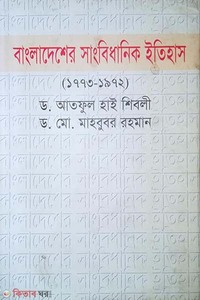 বাংলাদেশের সাংবিধানিক ইতিহাস
(১৭৭৩-১৯৭২)
ড. আতফুল হাই শিবলী
ড. মো. মাহবুবর রহমান
কিতাব ঘর